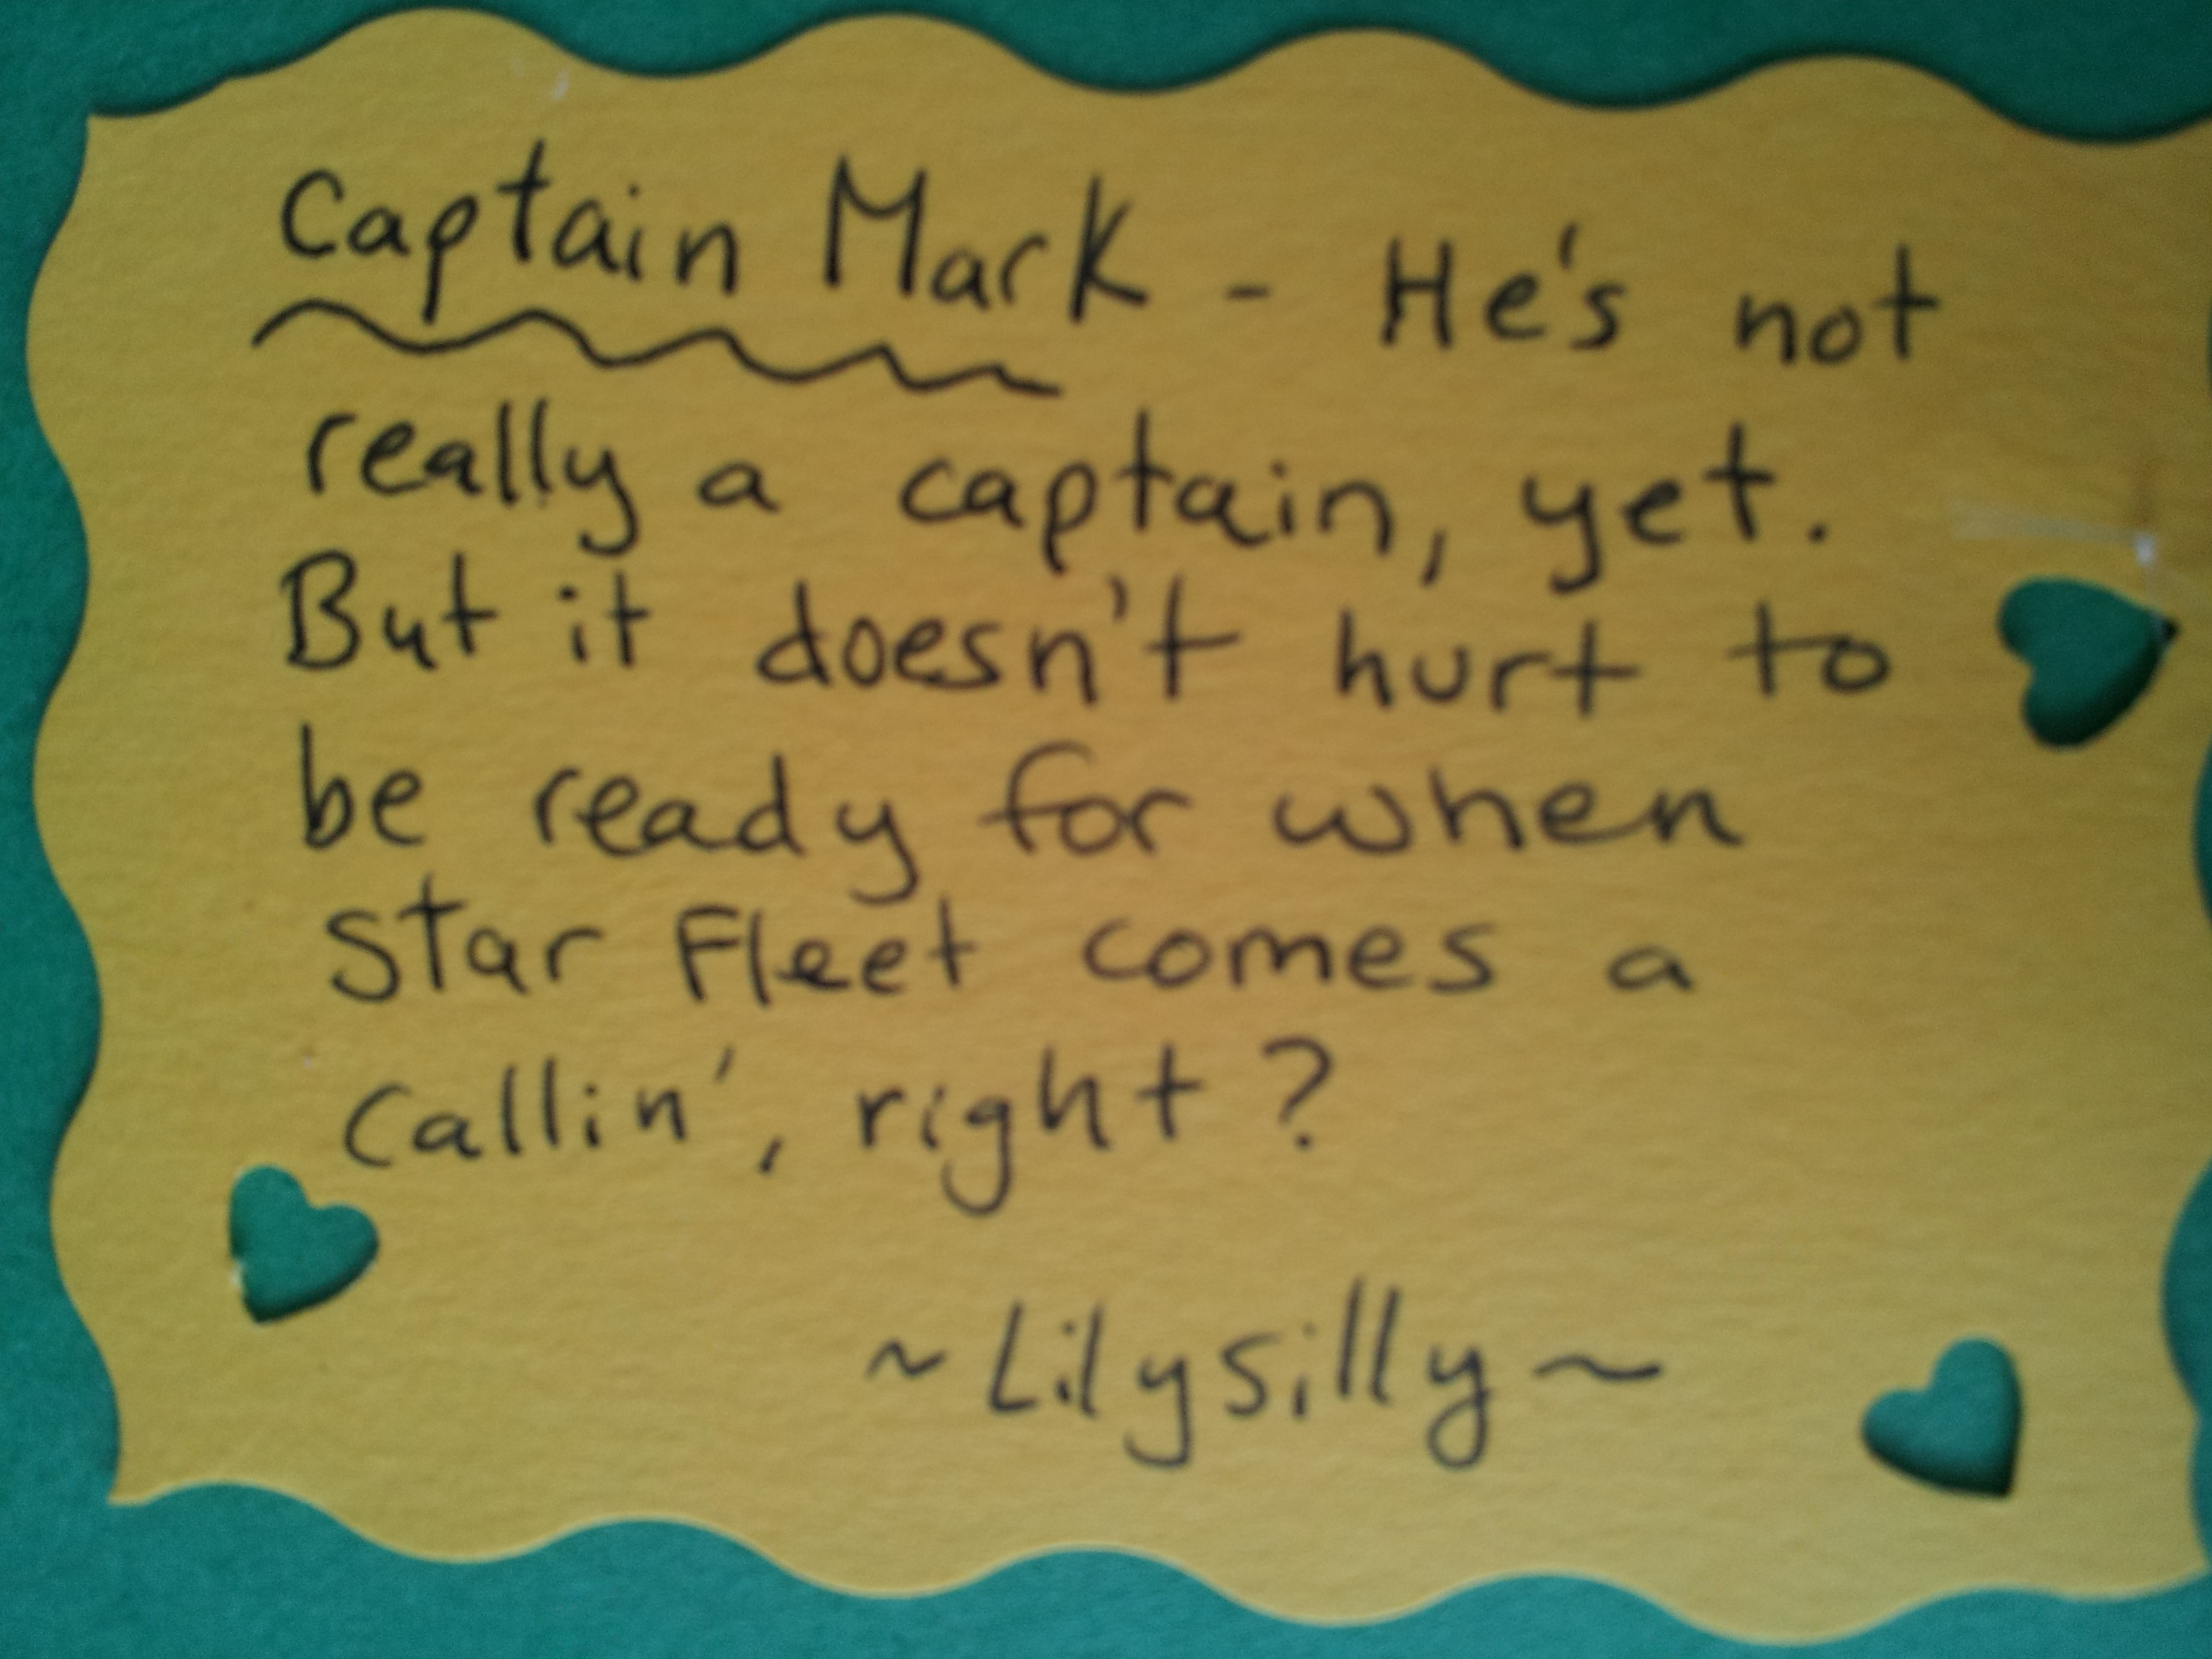 Captain Mark - He's not
really a captain, yet.
But it doesn't hurt to
be ready for when
Star Fleet comes a
callin', right?
~Lilysilly~